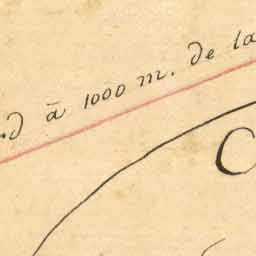 d ā 1000 m. de la
C